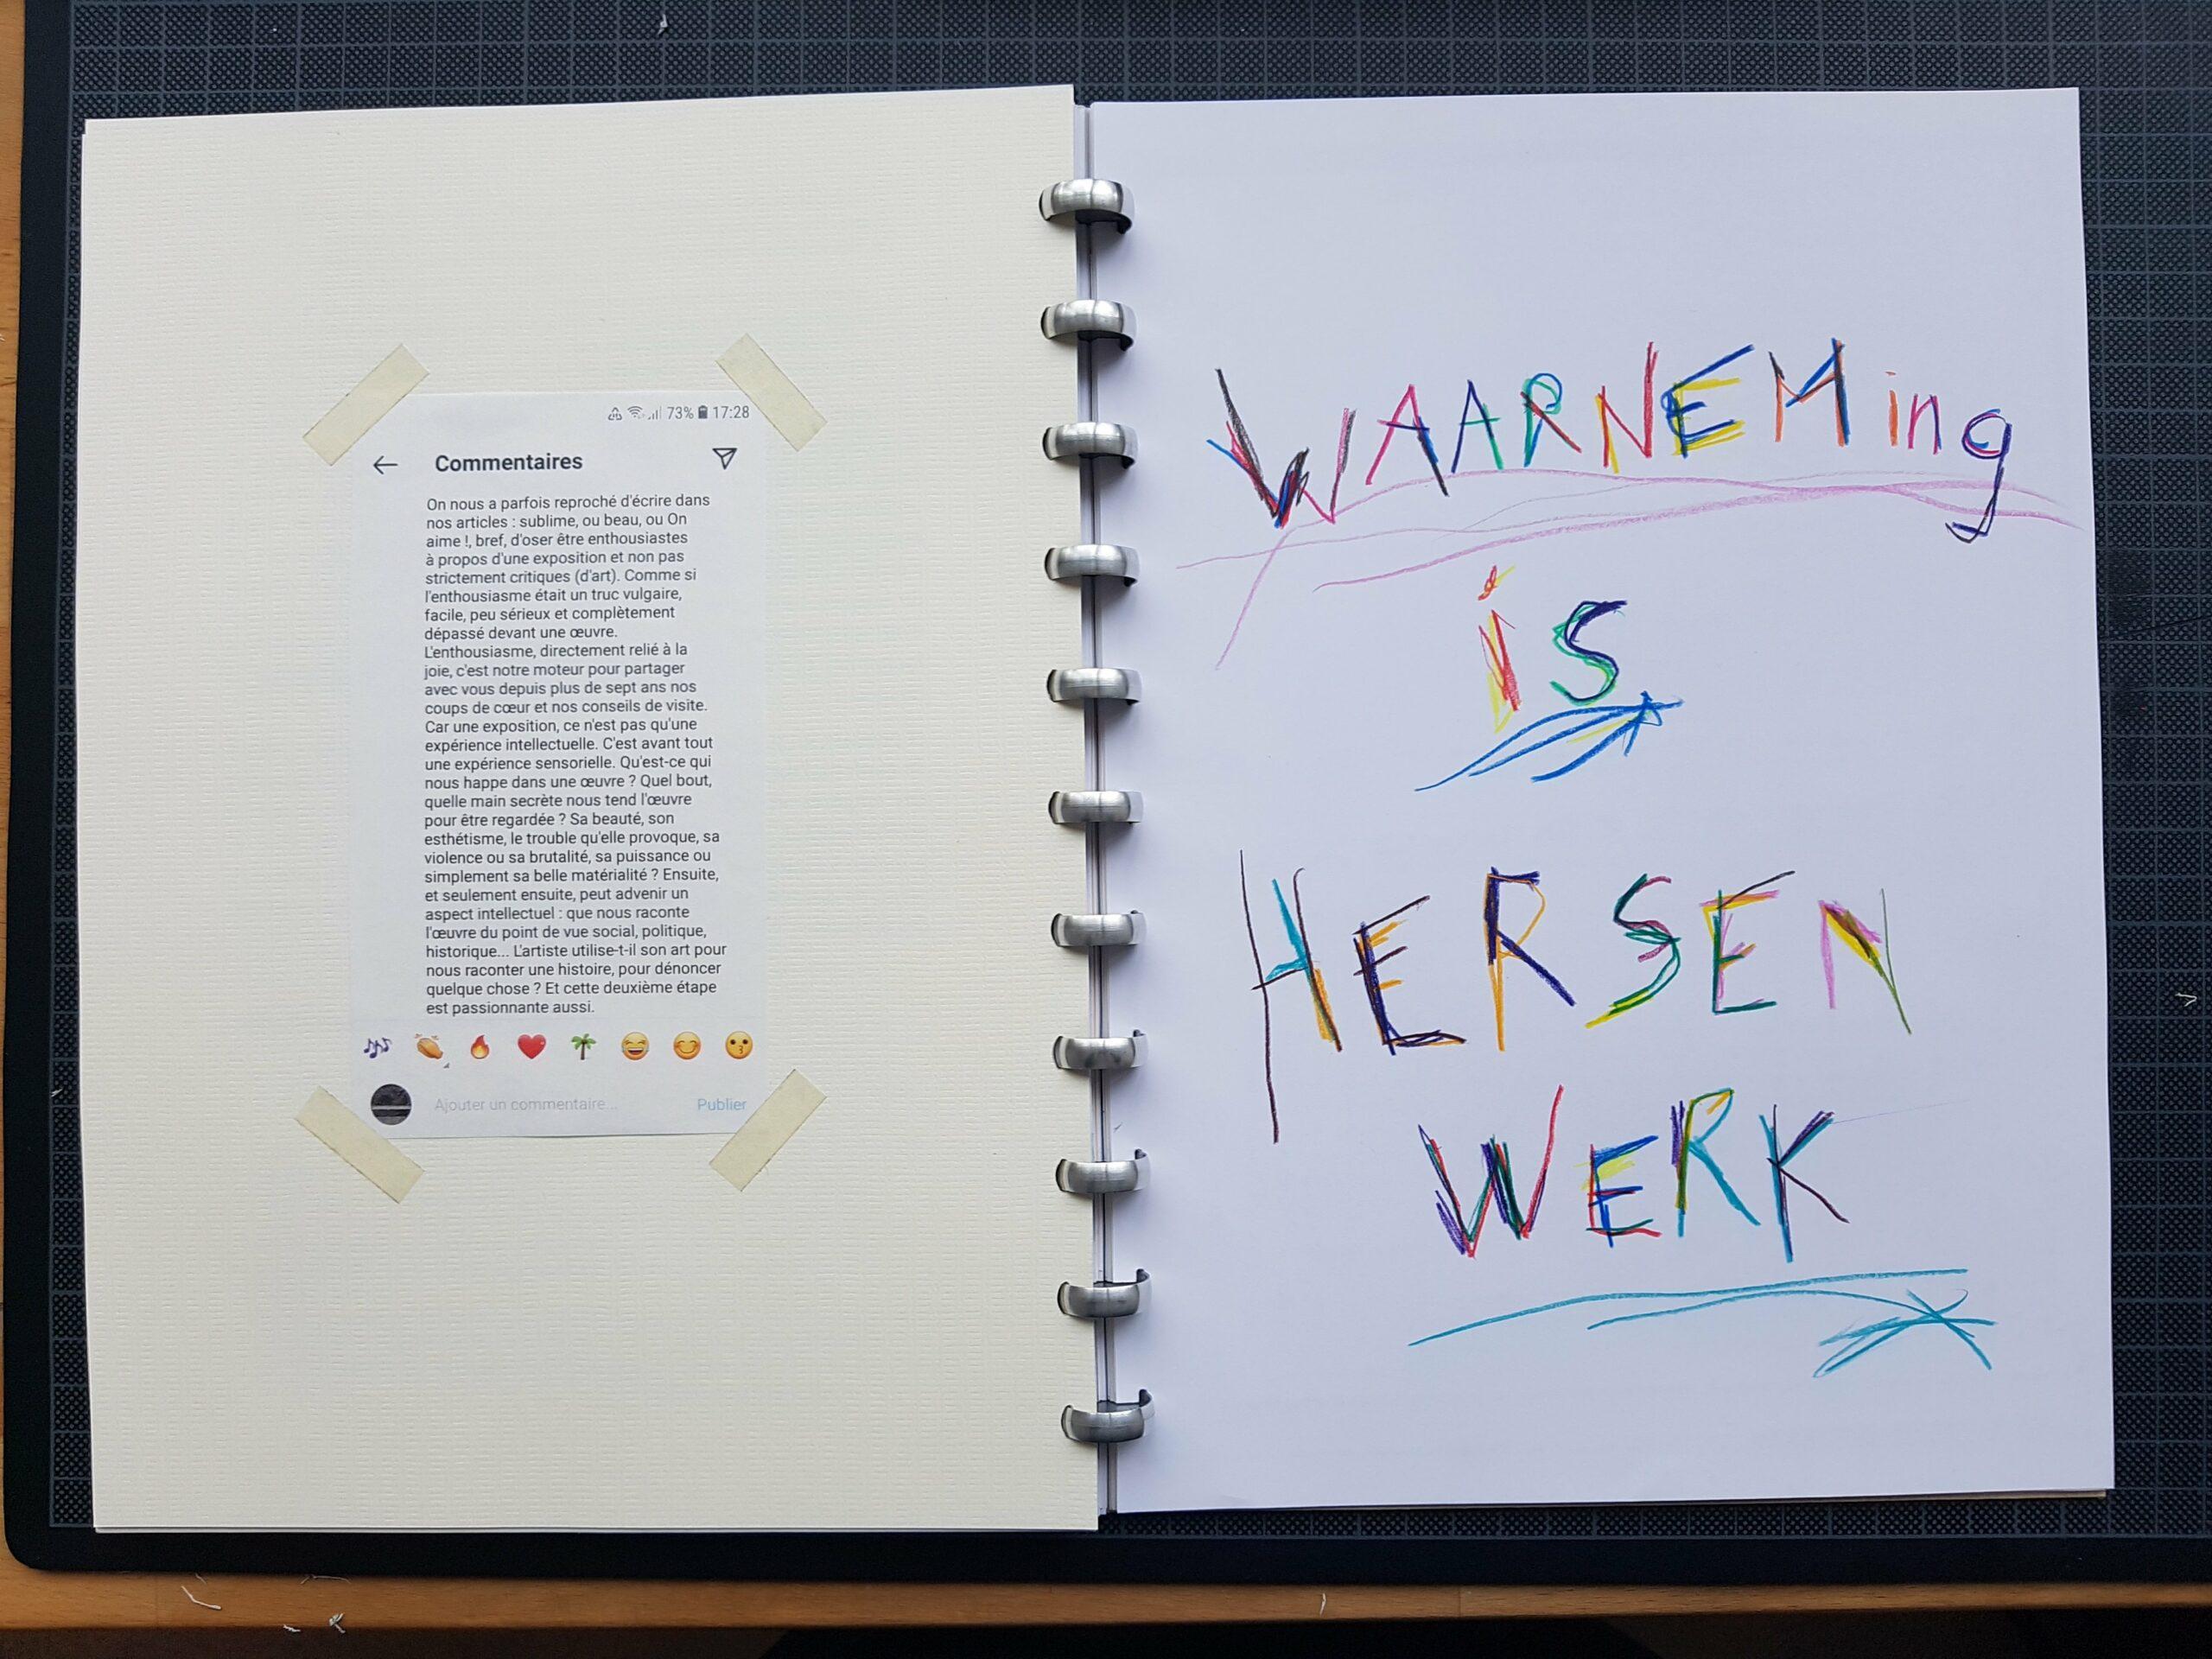 73% 17:28
Commentaires
On nous a parfois reproché d'écrire dans
nos articles : sublime, ou beau, ou On
aime !, bref, d'oser être enthousiastes
à propos d'une exposition et non pas
strictement critiques (d'art). Comme si
l'enthousiasme était un truc vulgaire,
facile, peu sérieux et complètement
dépassé devant une œuvre.
L'enthousiasme, directement relié à la
joie, c'est notre moteur pour partager
avec vous depuis plus de sept ans nos
coups de cœur et nos conseils de visite.
Car une exposition, ce n'est pas qu'une
expérience intellectuelle. C'est avant tout
une expérience sensorielle. Qu'est-ce qui
nous happe dans une œuvre ? Quel bout,
quelle main secrète nous tend l'œuvre
pour être regardée ? Sa beauté, son
esthétisme, le trouble qu'elle provoque, sa
violence ou sa brutalité, sa puissance ou
simplement sa belle matérialité ? Ensuite,
et seulement ensuite, peut advenir un
aspect intellectuel : que nous raconte
l'œuvre du point de vue social, politique,
historique... L'artiste utilise-t-il son art pour
nous raconter une histoire, pour dénoncer
quelque chose ? Et cette deuxième étape
est passionnante aussi.
Ajouter un commentaire... Publier
WAARNEMing
is
HERSEN
WERK